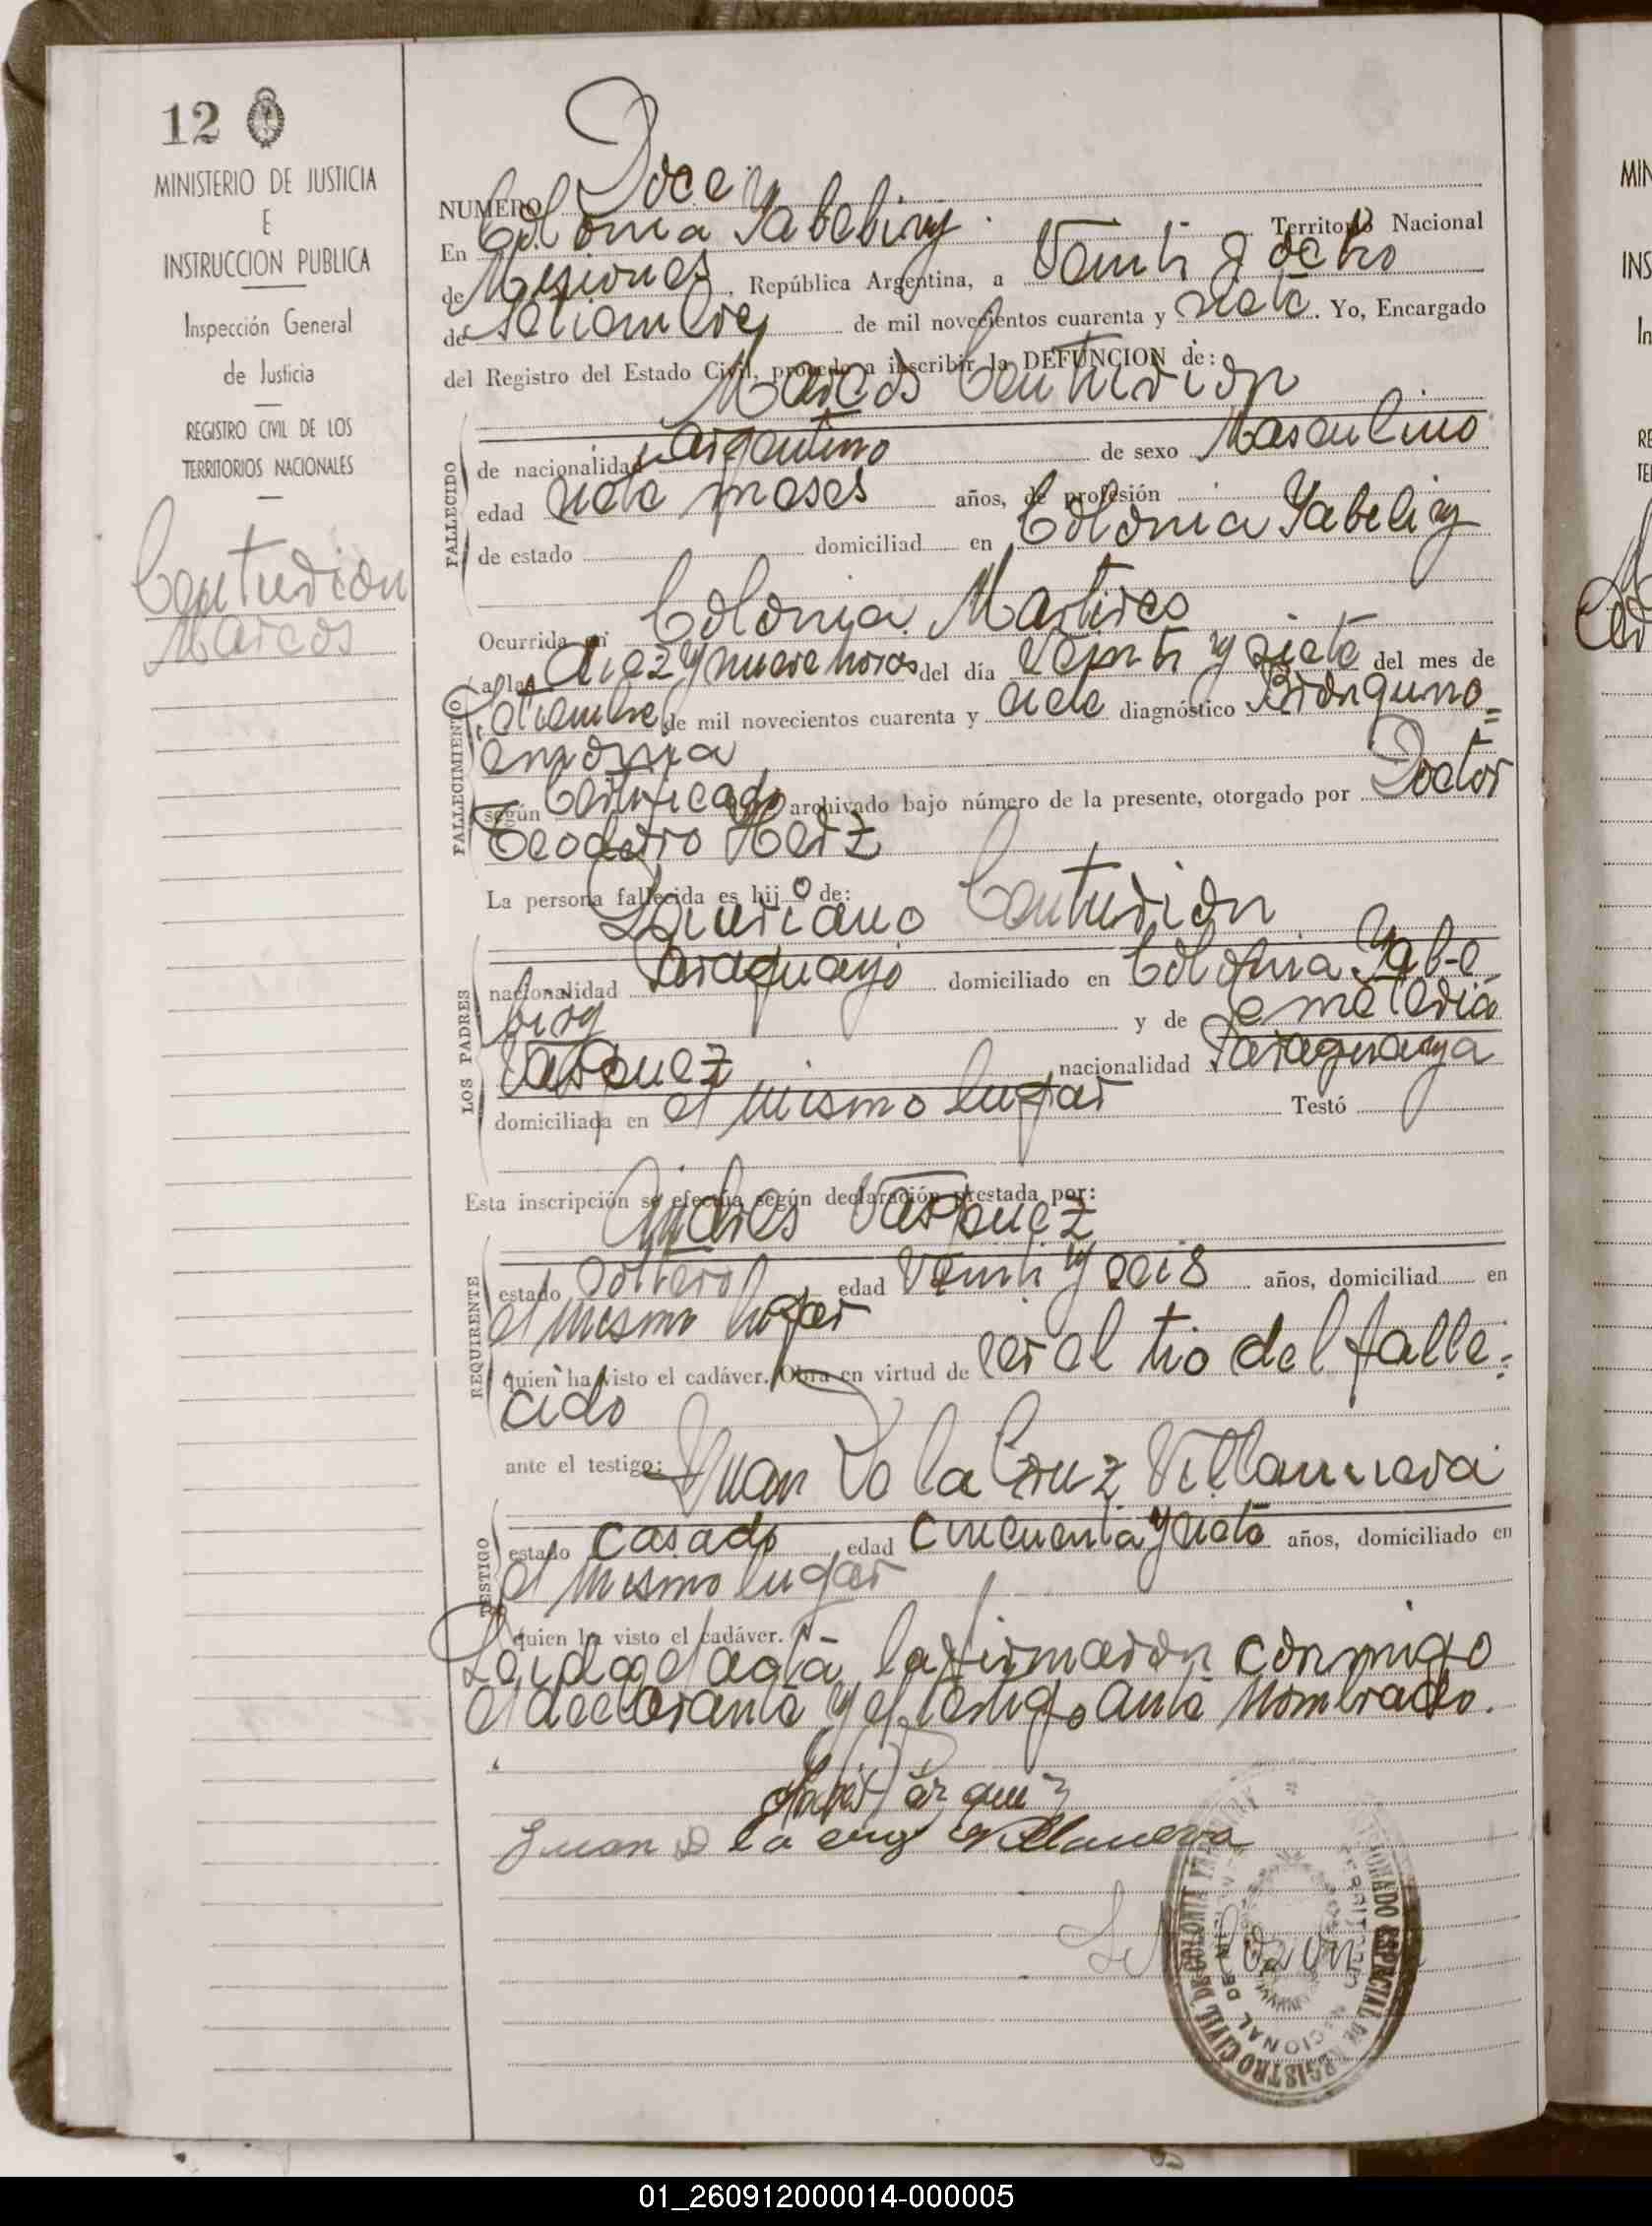 12
MINISTERIO DE JUSTICIA
E
INSTRUCCION PUBLICA
Inspección General
de Justicia
REGISTRO CIVIL DE LOS
TERRITORIOS NACIONALES
Centurion
Marcos
NUMERO Doce
En Colonia Yabebiry Territorio Nacional
de Misiones, República Argentina, a Veinti y ocho
de Setiembre de mil novecientos cuarenta y siete. Yo, Encargado
del Registro del Estado Civil, procedo a inscribir la DEFUNCION de:
Marcos Centurion
FALLECIDO
de nacionalidad argentino de sexo Masculino
edad siete meses años, de profesión
de estado domiciliad en Colonia Yabebiry
FALLECIMIENTO
Ocurrida en Colonia Martires
a las diez y nueve horas del día Veinti y siete del mes de
Setiembre de mil novecientos cuarenta y siete diagnóstico Bronquno=
emonia
según Certificado archivado bajo número de la presente, otorgado por Doctor
Teodoro Herz
La persona fallecida es hijo de:
Centurion
LOS PADRES
nacionalidad Paraguayo domiciliado en Colonia Yabe
biry y de emeteria
Vasquez nacionalidad Paraguaya
domiciliada en el mismo lugar Testó
Esta inscripción se efectúa según declaración prestada por:
Andres Vasquez
REQUIRENTE
estado Soltero edad Veinti y seis años, domiciliad en
el mismo lugar
quien ha visto el cadáver. Obra en virtud de ser el tio del falle=
cido
ante el testigo: Juan D la Cruz Villanueva
TESTIGO
estado casado edad cincuenta y siete años, domiciliado en
el mismo lugar
quien ha visto el cadáver.
Leida el acta la firmaron conmigo
el declarante y el testigo ante nombrado.
Juan D la cruz Villanueva
REGISTRO CIVIL DE COLONIA
01_260912000014-000005